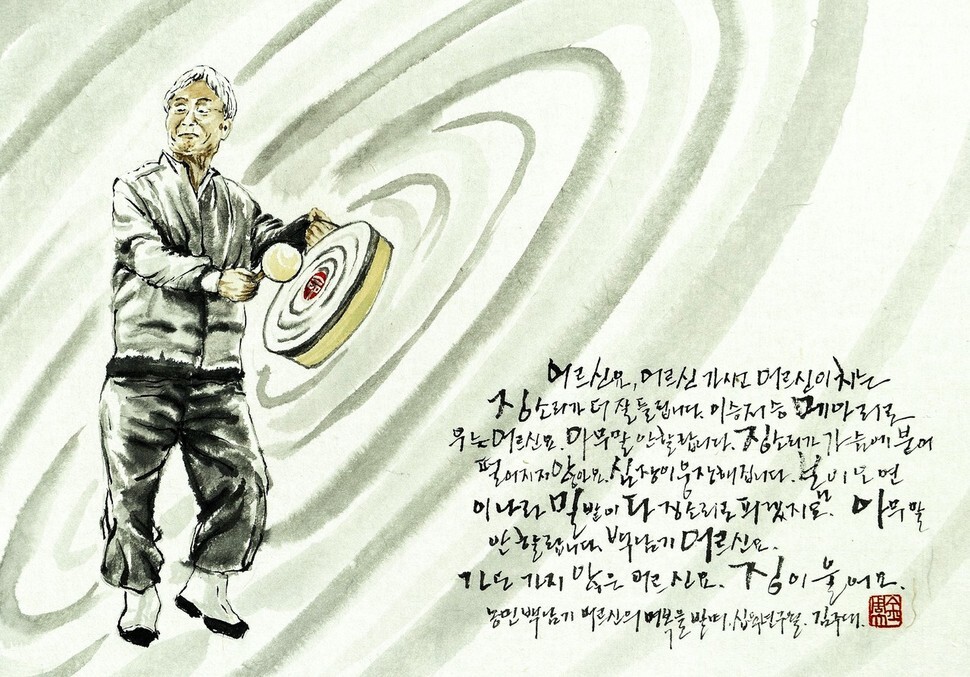 어르신요, 어르신 가셔도 어르신이 치는
징소리가 더 잘 들립니다. 이승저승 메아리로
우는 어르신요. 아무말 안할랍니다. 징소리가 가슴에 붙어
떨어지지 않아요. 심장이 웅장해집니다. 봄이 오면
이 나라 밀밭이 다 징소리로 피겠지요. 아무 말
안 할랍니다. 백남기 어르신요.
가도 가지 않은 어르신요. 징이 울어요.
농민 백남기 어르신의 명복을 빌며. 김주대.